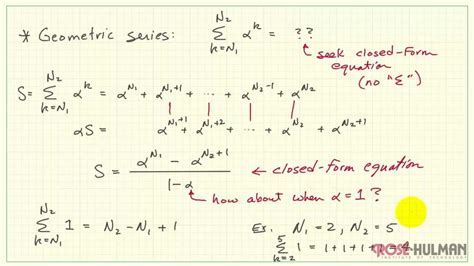 * Geometric series: Σ_{k=N₁}^{N₂} α^k = ??
seek closed-form
equation
(no "Σ")
S = Σ_{k=N₁}^{N₂} α^k = α^{N₁} + α^{N₁+1} + ··· + α^{N₂-1} + α^{N₂}
αS = α^{N₁+1} + α^{N₁+2} + ··· + α^{N₂} + α^{N₂+1}
S = (α^{N₁} - α^{N₂+1}) / (1-α) ← closed-form equation
how about when α=1?
Σ_{k=N₁}^{N₂} 1 = N₂-N₁+1
Ex: N₁=2, N₂=5
Σ_{k=2}^{5} 1 = 1+1+1+1 = 4
ROSE-HULMAN
INSTITUTE OF TECHNOLOGY